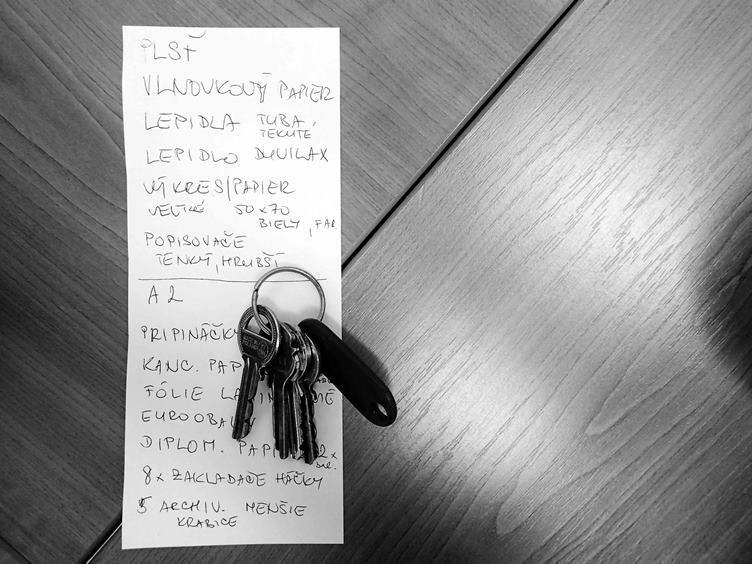 PLSŤ
VLNOVKOVÝ PAPIER
LEPIDLA TUBA,
TEKUTE
LEPIDLO DUVILAX
VÝKRES/PAPIER
VEĽKÉ 50x70
BIELY, FAR
POPISOVAČE
TENKÝ, HRUBŠÍ
A2
PRIPINÁČKY
KANC. PAP
FÓLIE
EUROOBA
DIPLOM. PAPI 2x
8x ZAKLADAČE HÁČKY
5 ARCHIV. MENŠIE
KRABICE